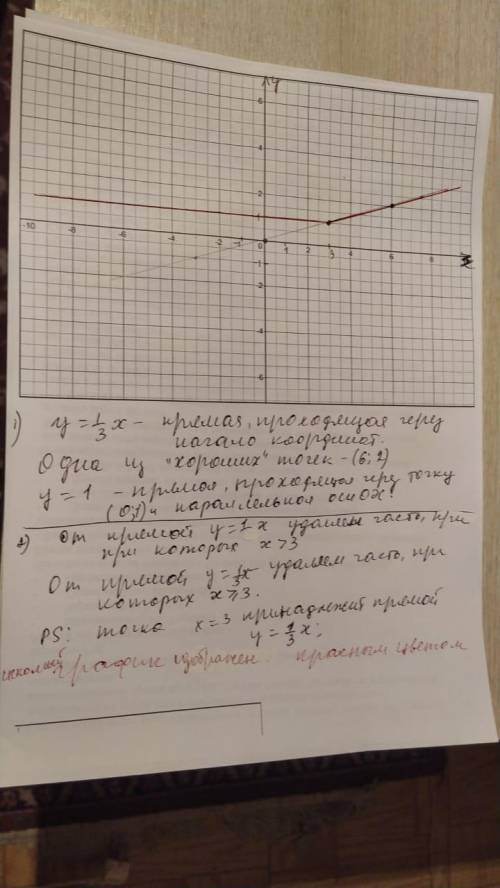 y
6
4
2
1
-10 -8 -6 -4 -2 -1 0 1 3 6 8 x
-1
-2
-4
-6
1) y = 1/3 x - прямая, проходящая через
начало координат.
Одна из "хороших" точек - (6; 2)
y = 1 - прямая, проходящая через точку
(0;1) и параллельная оси OX!
2) От прямой y = 1 x удаляем часть, при
при которых x > 3
От прямой y = 1/3 x удаляем часть, при
которых x ⩾ 3.
PS: точка x = 3 принадлежит прямой
y = 1/3 x;
искомый график изображен красным цветом